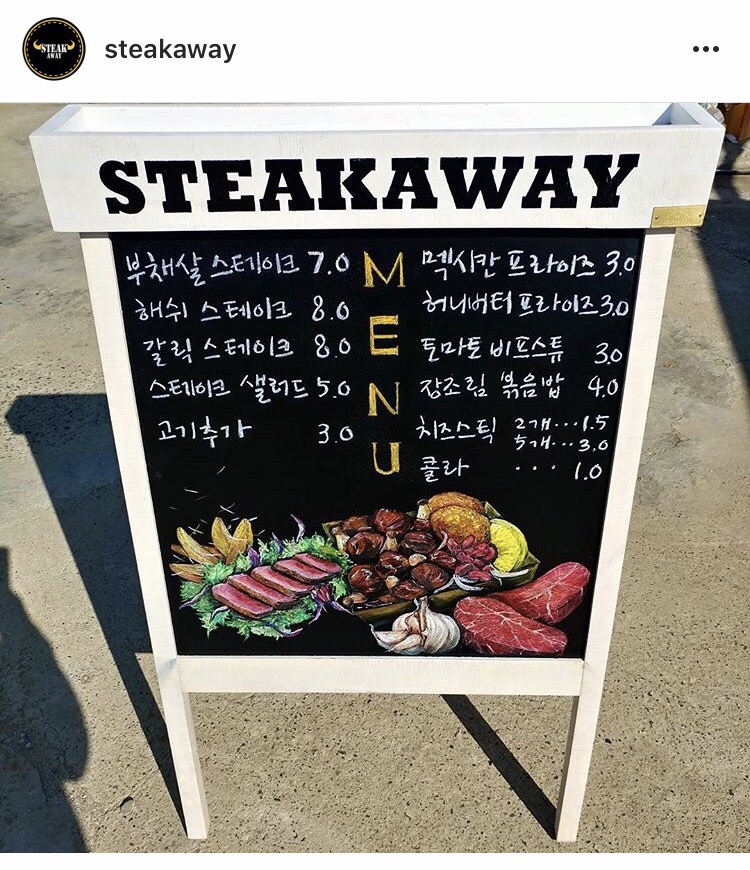 STEAK
AWAY
steakaway
STEAKAWAY
MENU
부채살 스테이크 7.0
해쉬 스테이크 8.0
갈릭 스테이크 8.0
스테이크 샐러드 5.0
고기추가 3.0
멕시칸 프라이즈 3.0
허니버터 프라이즈 3.0
토마토 비프스튜 3.0
장조림 볶음밥 4.0
치즈스틱 2개···1.5
5개···3.0
콜라 ··· 1.0